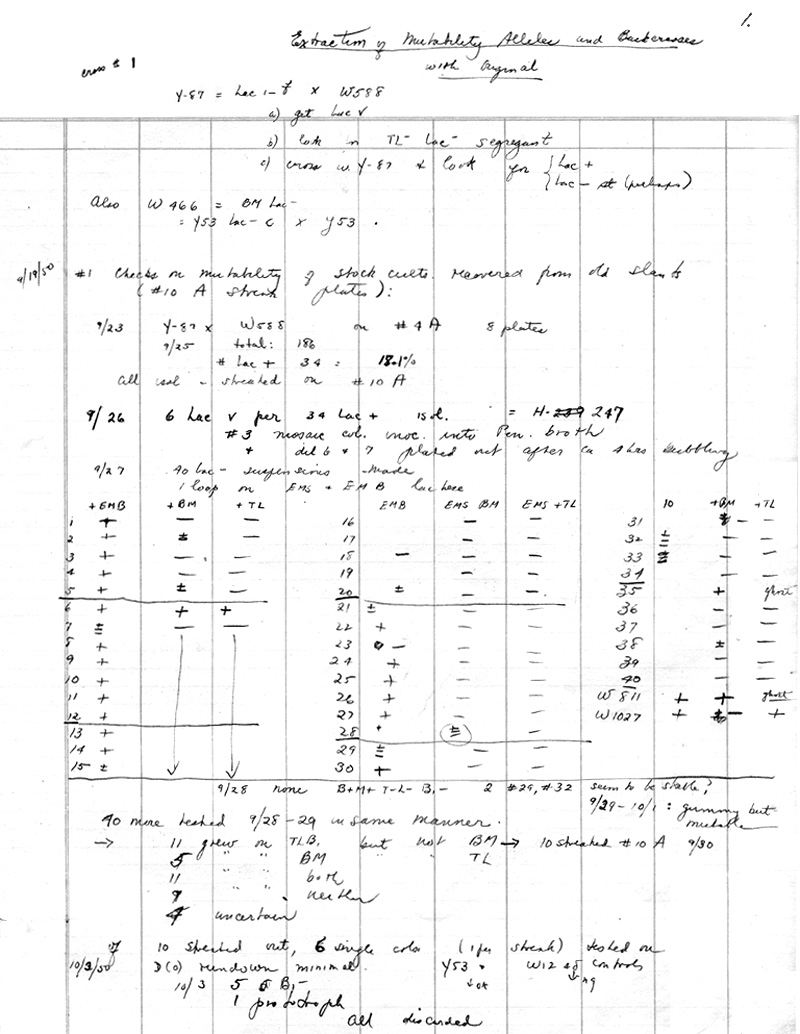 1.
Extraction of Mutability Alleles and Backcrosses
with Original
cross # 1
Y-87 = Lac 1- × W588
a) get Lac v
b) look in TL- Lac- segregant
c) cross w Y-87 & look for { Lac +
{ Lac - st (perhaps)
Also W466 = BM Lac-
= Y53 Lac- c × Y53 .
9/19/50 #1 Checks on mutability of stock cults. recovered from old slants
(#10 A streak plates):
9/23 Y-87 × W588 on #4A 8 plates
9/25 total: 186
# Lac + 34 = 18.1%
All isol - streaked on #10 A
9/26 6 Lac v per 34 Lac + isol. = H-239 247
#3 mosaic col. inoc. into Pen. broth
+ dil 6 & 7 plated out after ca 4 hrs bubbling
9/27 40 lac- suspensions made
1 loop on EMS + EMB lac here
+EMB +BM +TL EMB EMS BM EMS +TL 10 +BM +TL
1 + — — 16 — — 31 — —
2 + ± — 17 — — 32 ± — —
3 + — — 18 — — — 33 — —
4 + — — 19 — — 34 — —
5 + ± — 20 ± — — 35 + ghost
6 + + + 21 ± — — 36 — —
7 ± — — 22 + — — 37 — —
8 + 23 — — — 38 ± —
9 + 24 + — — 39 — —
10 + 25 + — — 40 — —
11 + 26 + — — W811 + + ghost
12 + 27 + — — W1027 + — +
13 + 28 ± —
14 + 29 ± — —
15 ± 30 + — —
9/28 none B+M+ T-L- B1- 2 #29, #32 seem to be stable?
9/29-10/1: gummy but
mutable
40 more tested 9/28-29 in same manner.
→ 11 grew on TLB, but not BM → 10 streaked #10 A 9/30
5 " " BM " " TL
11 " " both
9 " " neither
4 uncertain
of 10 streaked out, 6 single cols (1 per streak) tested on
10/3/50 D(0) rundown minimal. Y53 & W12 as controls
↓ok ↓ng
10/3 5 B1-
1 prototroph
All discarded